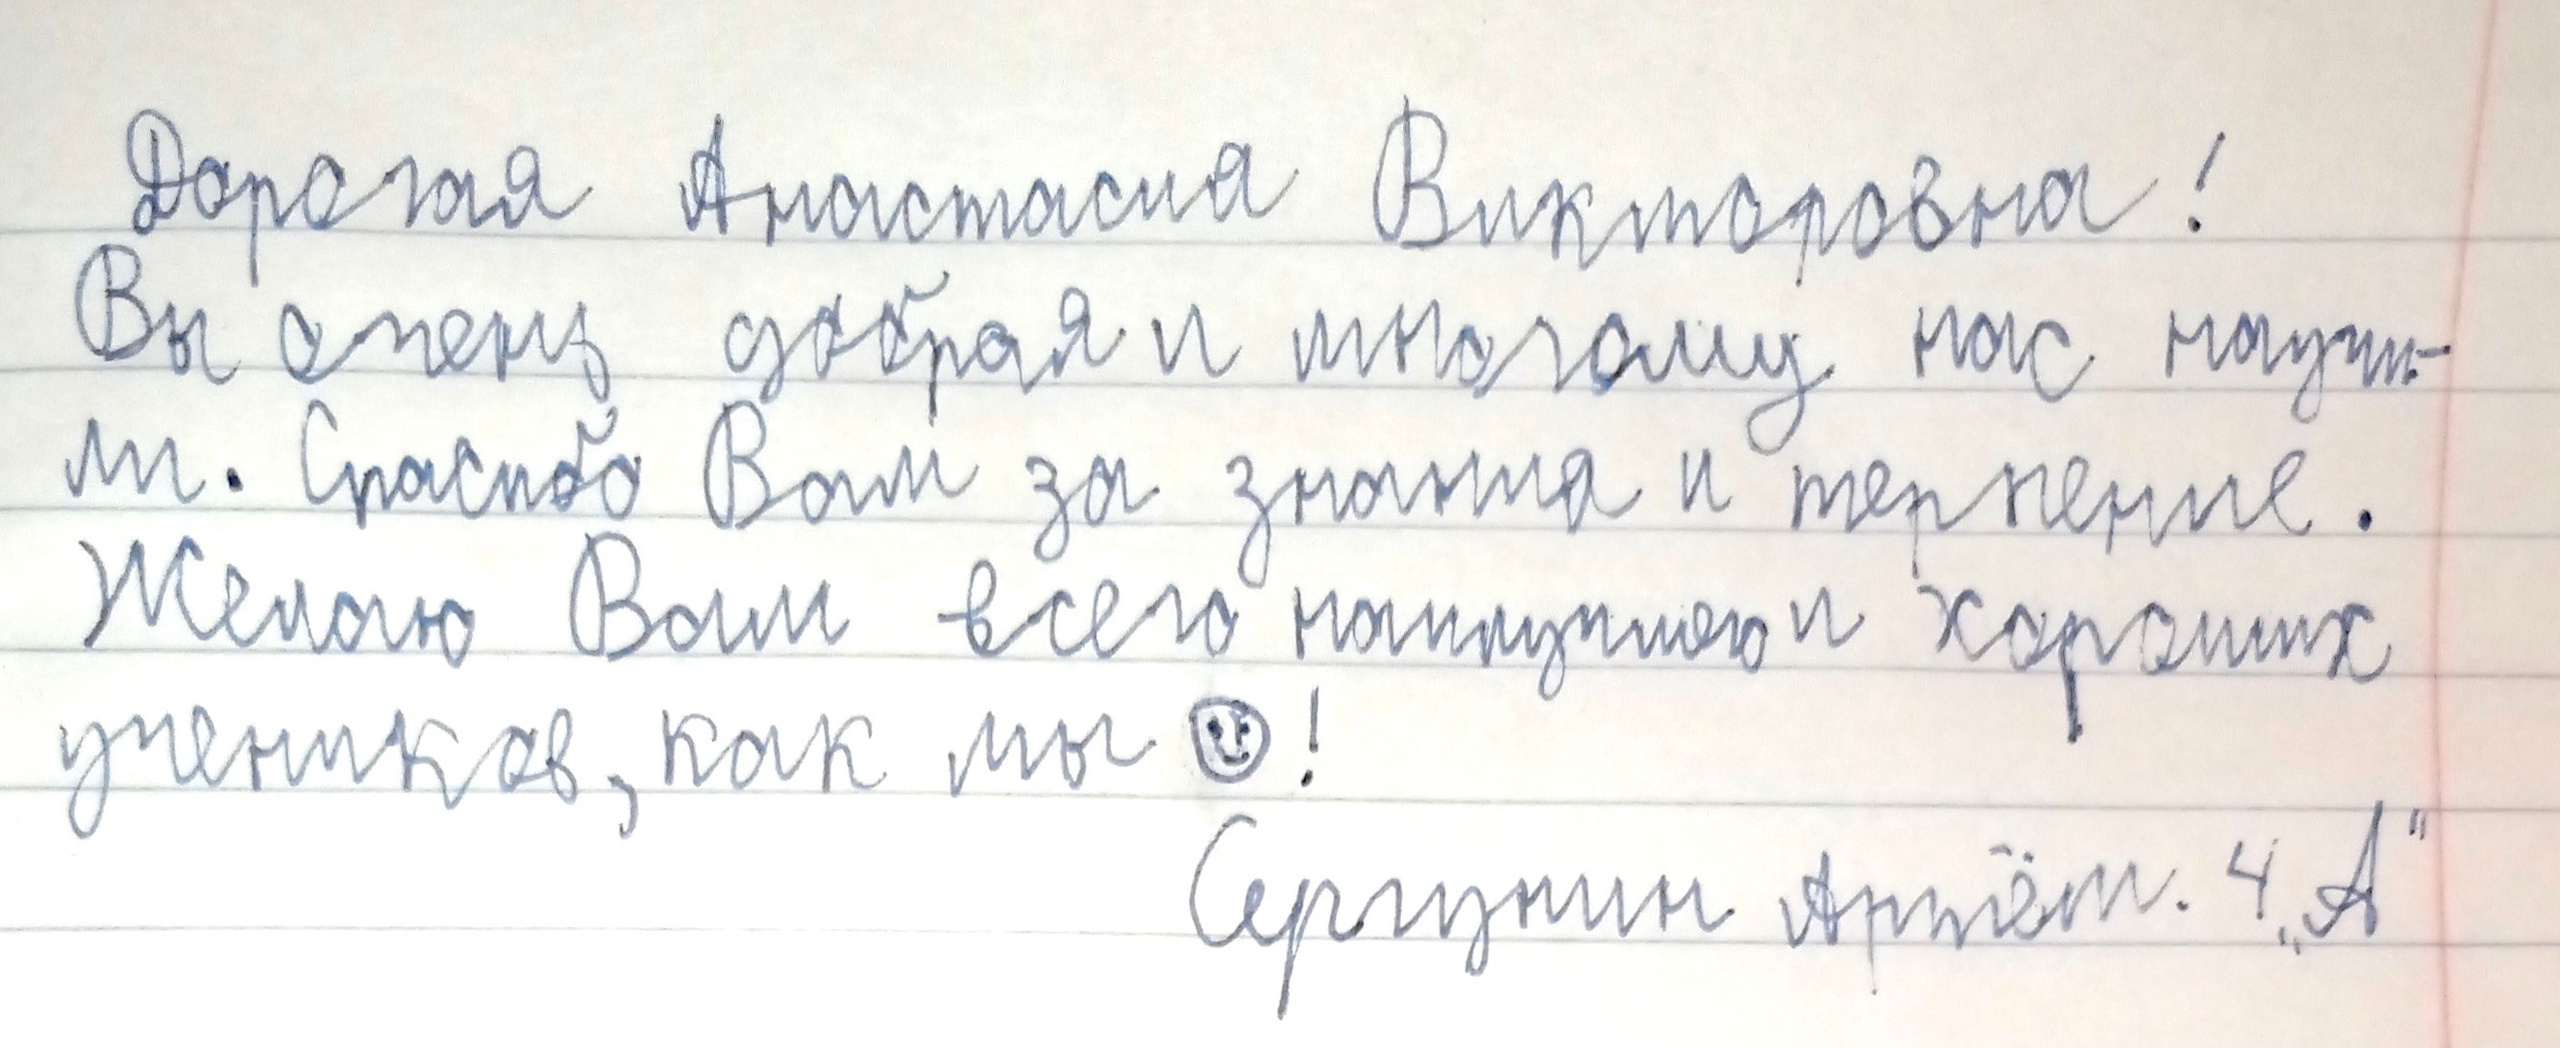 Дорогая Анастасия Викторовна!
Вы очень добрая и многому нас научи-
ли. Спасибо Вам за знания и терпение.
Желаю Вам всего наилучшего и хороших
учеников, как мы ☺!
Сергунин Артём. 4 „А"